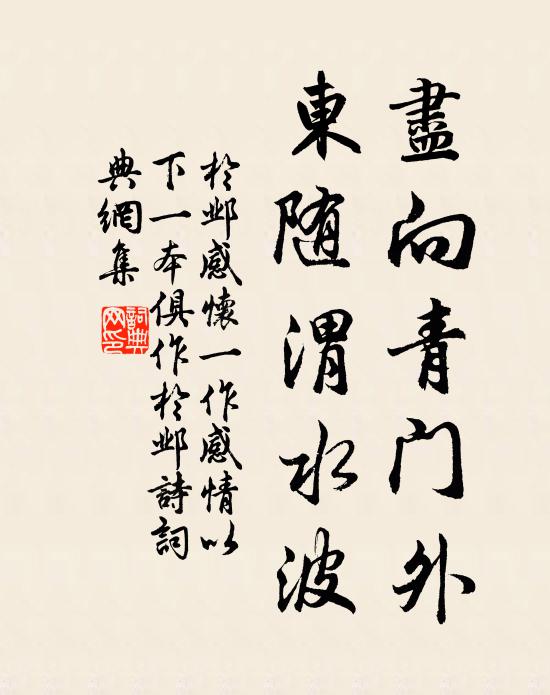 盡向青门外
東随渭水波
於邺感懷一作感情以
下一本俱作於邺詩詞
典網集
詞典
网印